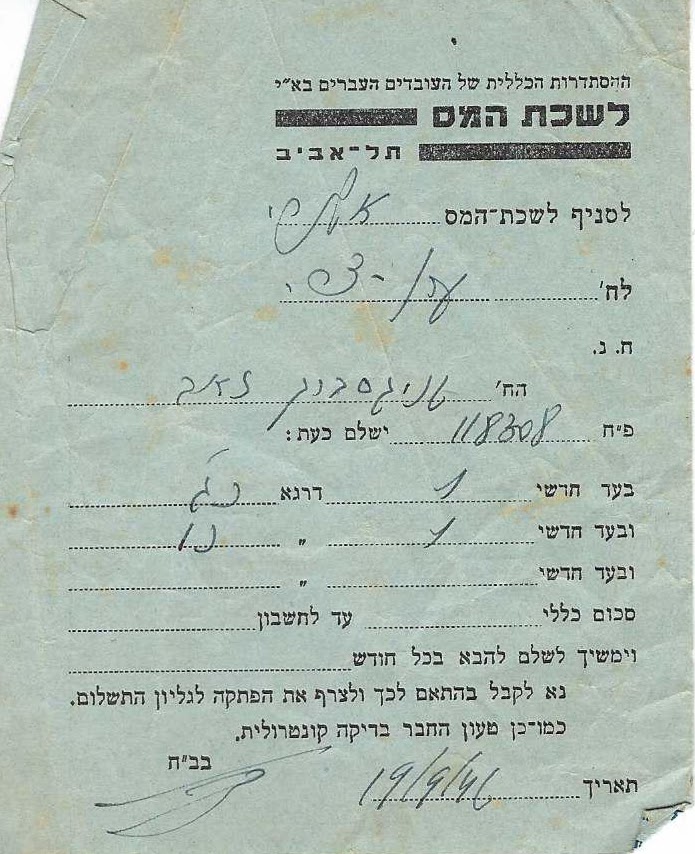 ההסתדרות הכללית של העובדים העברים בא״י
לשכת המס
תל־אביב
לסניף לשכת־המס
לח׳
ח. נ.
הח׳ זאב
פ״ח 118308 ישלם כעת:
בעד חדשי 1 דרגא
ובעד חדשי 1 ״
ובעד חדשי ״
סכום כללי עד לחשבון
וימשיך לשלם להבא בכל חודש
נא לקבל בהתאם לכך ולצרף את הפתקה לגליון התשלום.
כמו־כן טעון החבר בדיקה קונטרולית.
בב״ח
תאריך 19/9/46